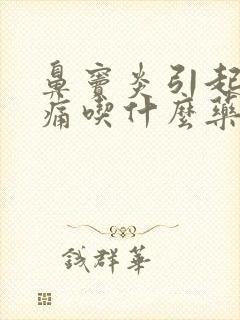 鼻竇炎引起
痛喫什麼藥
錢群華